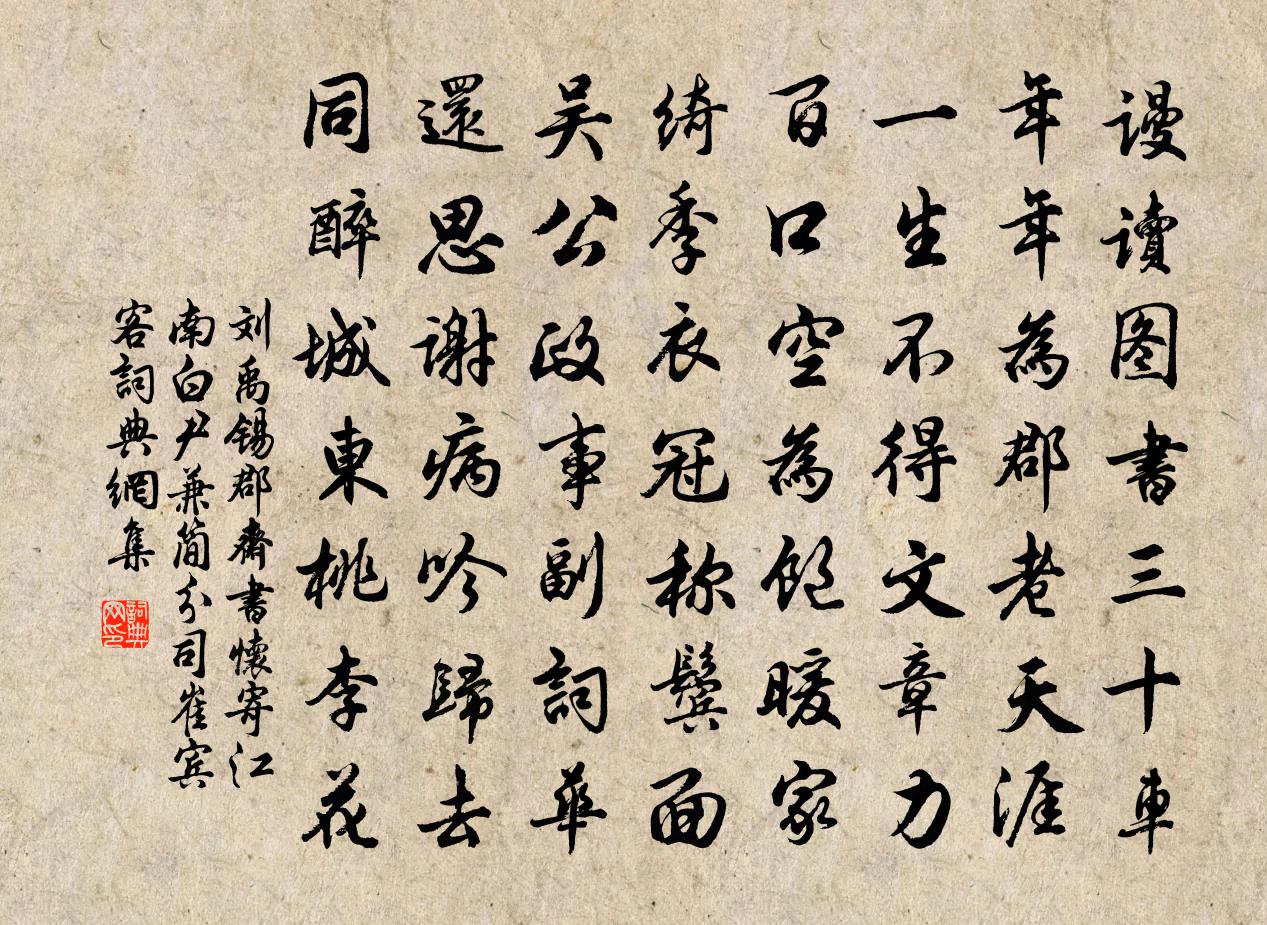 謾讀图書三十車
年年為郡老天涯
一生不得文章力
百口空為飽暖家
綺季衣冠称鬓面
吴公政事副詞華
還思謝病吟歸去
同醉城東桃李花
刘禹锡郡齋書懷寄江
南白尹兼简分司崔宾
客詞典網集
詞典
网印